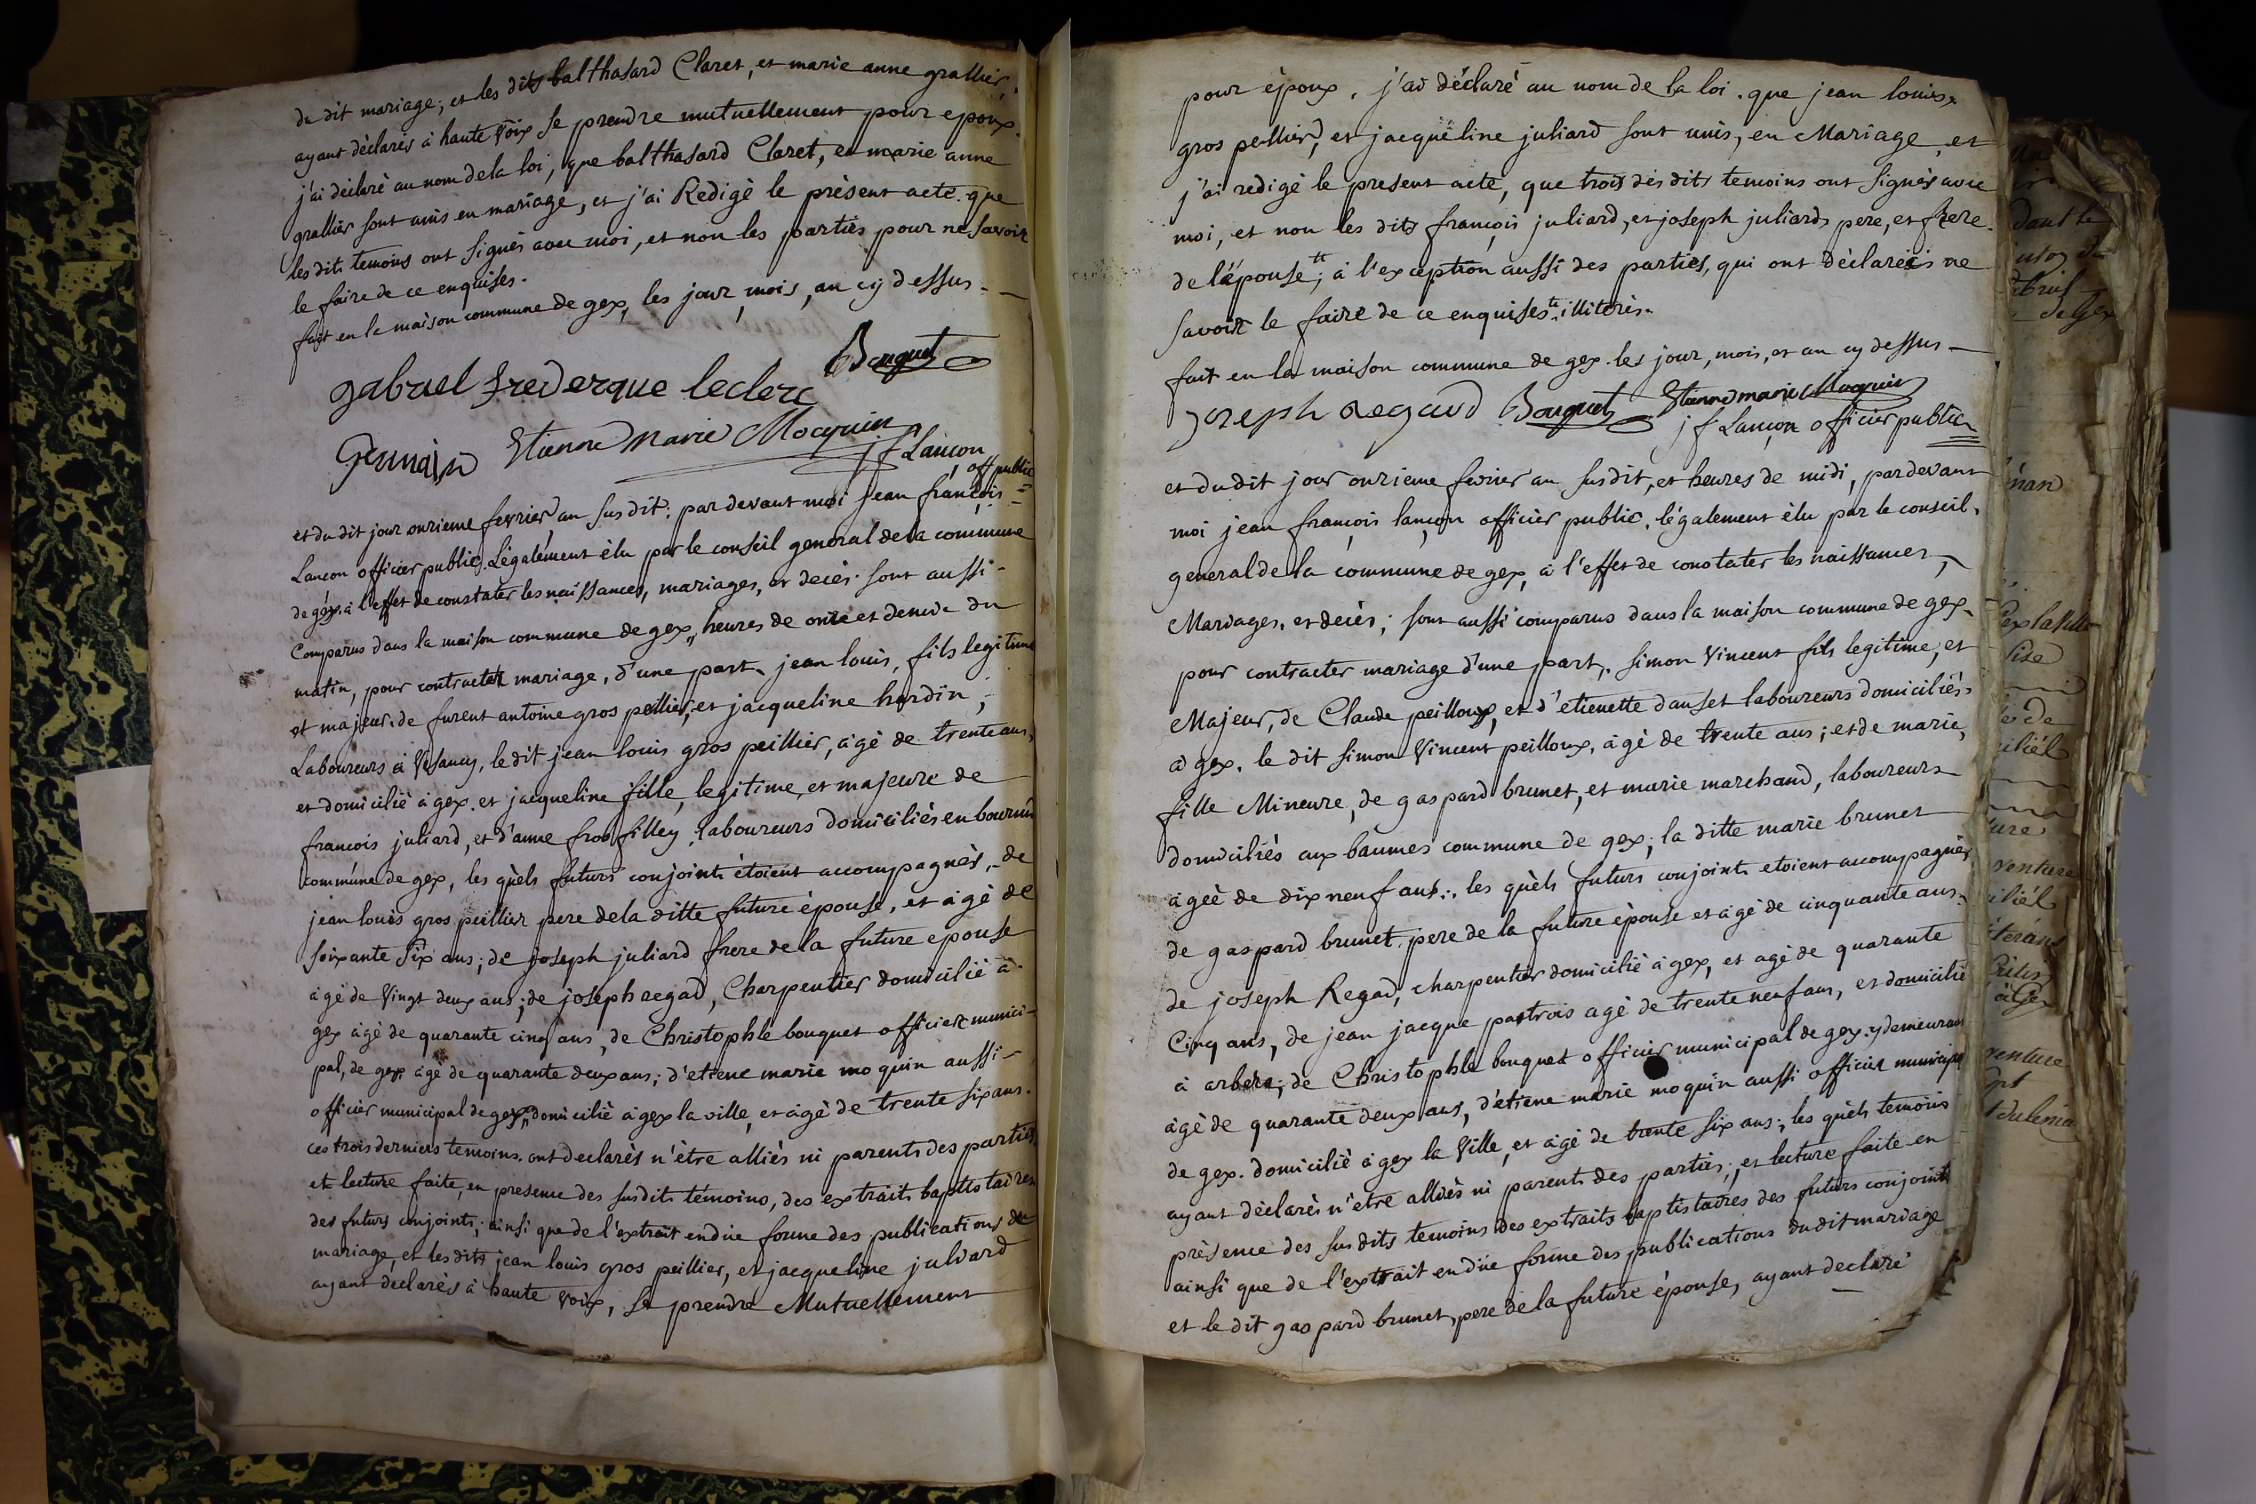 du dit mariage; et les dits balthasard Claret, et marie anne grallier,
ayant déclarés à haute voix se prendre mutuellement pour epoux.
j'ai déclaré au nom de la loi, que balthasard Claret, et marie anne
grallier sont unis en mariage, et j'ai Redigé le prèsent acte. que
les dits temoins ont signés avec moi, et non les partiès pour ne savoir
le faire de ce enquises.
fait en la maison commune de gex, les jour, mois, an cy dessus.
Bouquet
gabriel frederque leclerc
Germain Etienne Marie Moquin
jf Lançon
off public
et du dit jour onzieme fevrier an susdit. par devant moi jean françois
Lancon officier public. Légalement élu par le conseil general de la commune
de gex. à l'effet de constatèr les naissances, mariages, et decès. sont aussi
Comparus dans la maison commune de gex, heures de onze et demie du
matin, pour contracter mariage, d'une part, jean louis, fils legitime
et majeur. de furent antoine gros peillier, et jacqueline hardin,
Laboureurs à Vesancy, le dit jean louis gros peillier, agé de trente ans,
et domicilié à gex. et jacqueline fille, legitime, et majeure de
francois juliard, et d'anne fros filley, laboureurs domiciliés en
commune de gex, les quèls futurs conjoints étoient accompagnès, de
jean louis gros peillier pere de la ditte future épouse, et agé de
soixante six ans; de joseph juliard frere de la future epouse
agé de Vingt deux ans; de joseph regad, Charpentier domicilié à
gex agé de quarante cinq ans, de Christophle bouquet officier munici-
pal, de gex agé de quarante deux ans; d'etiene marie moquin aussi
officier municipal de gex, domicilié à gex la ville, et agé de trente six ans.
ces trois derniers temoins. ont declarès n'ètre alliès ni parents des parties,
et lecture faite, en presence des susdits témoins, des extraits baptistaires
des futurs conjoints; ainsi que de l'extrait en düe forme des publications de
mariage, et les dits jean louis gros peillier, et jacqueline juliard
ayant declarès à haute voix, se prendre Mutuellement
pour époux. j'ai déclaré au nom de la loi. que jean louis
gros peillier, et jacqueline juliard sont unis, en Mariage, et
j'ai redigé le present acte, que trois des dits temoins ont signés avec
moi, et non les dits françois juliard, et joseph juliard, pere, et frere
de l'épouse; à l'exception aussi des parties, qui ont déclarés ne
savoir le faire de ce enquises. illiterés.
fait en la maison commune de gex. les jour, mois, et an cy dessus
joseph Regaud Bouquet Etienne marie Moquin
jf Lançon officier public
et du dit jour onzieme fevrier an susdit, et heures de midi, pardevant
moi jean françois lançon officier public, légalement élu par le conseil
general de la commune de gex, à l'effet de constater les naissances,
Mariages, et decès; sont aussi comparus dans la maison commune de gex
pour contracter mariage d'une part, simon Vincent fils legitime, et
Majeur, de Claude peilloux, et d'etienette danset laboureurs domiciliès
à gex. le dit simon Vincent peilloux, agé de trente ans; et de marie,
fille Mineure, de gaspard brunet, et marie marchand, laboureurs
domiciliés aux baumes commune de gex; la ditte marie brunet
agée de dix neuf ans; les quèls futurs conjoints etoient accompagnés
de gaspard brunet. pere de la future épouse et agé de cinquante ans.
de joseph Regad, charpentier domicilié à gex, et agé de quarante
Cinq ans, de jean jacque pastrois agé de trente neuf ans, et domicilié
à arbère; de Christophle bouquet officier municipal de gex. y demeurant
agé de quarante deux ans, d'étiene marie moquin aussi officier municipal
de gex. domicilié à gex la Ville, et agé de trente six ans; les quèls temoins
ayant déclarés n'etre alliés ni parents des parties; et lecture faite en
prèsence des susdits temoins des extraits baptistaires des futurs conjoints
ainsi que de l'extrait en düe forme des publications du dit mariage
et le dit gaspard brunet, pere de la future épouse, ayant declaré